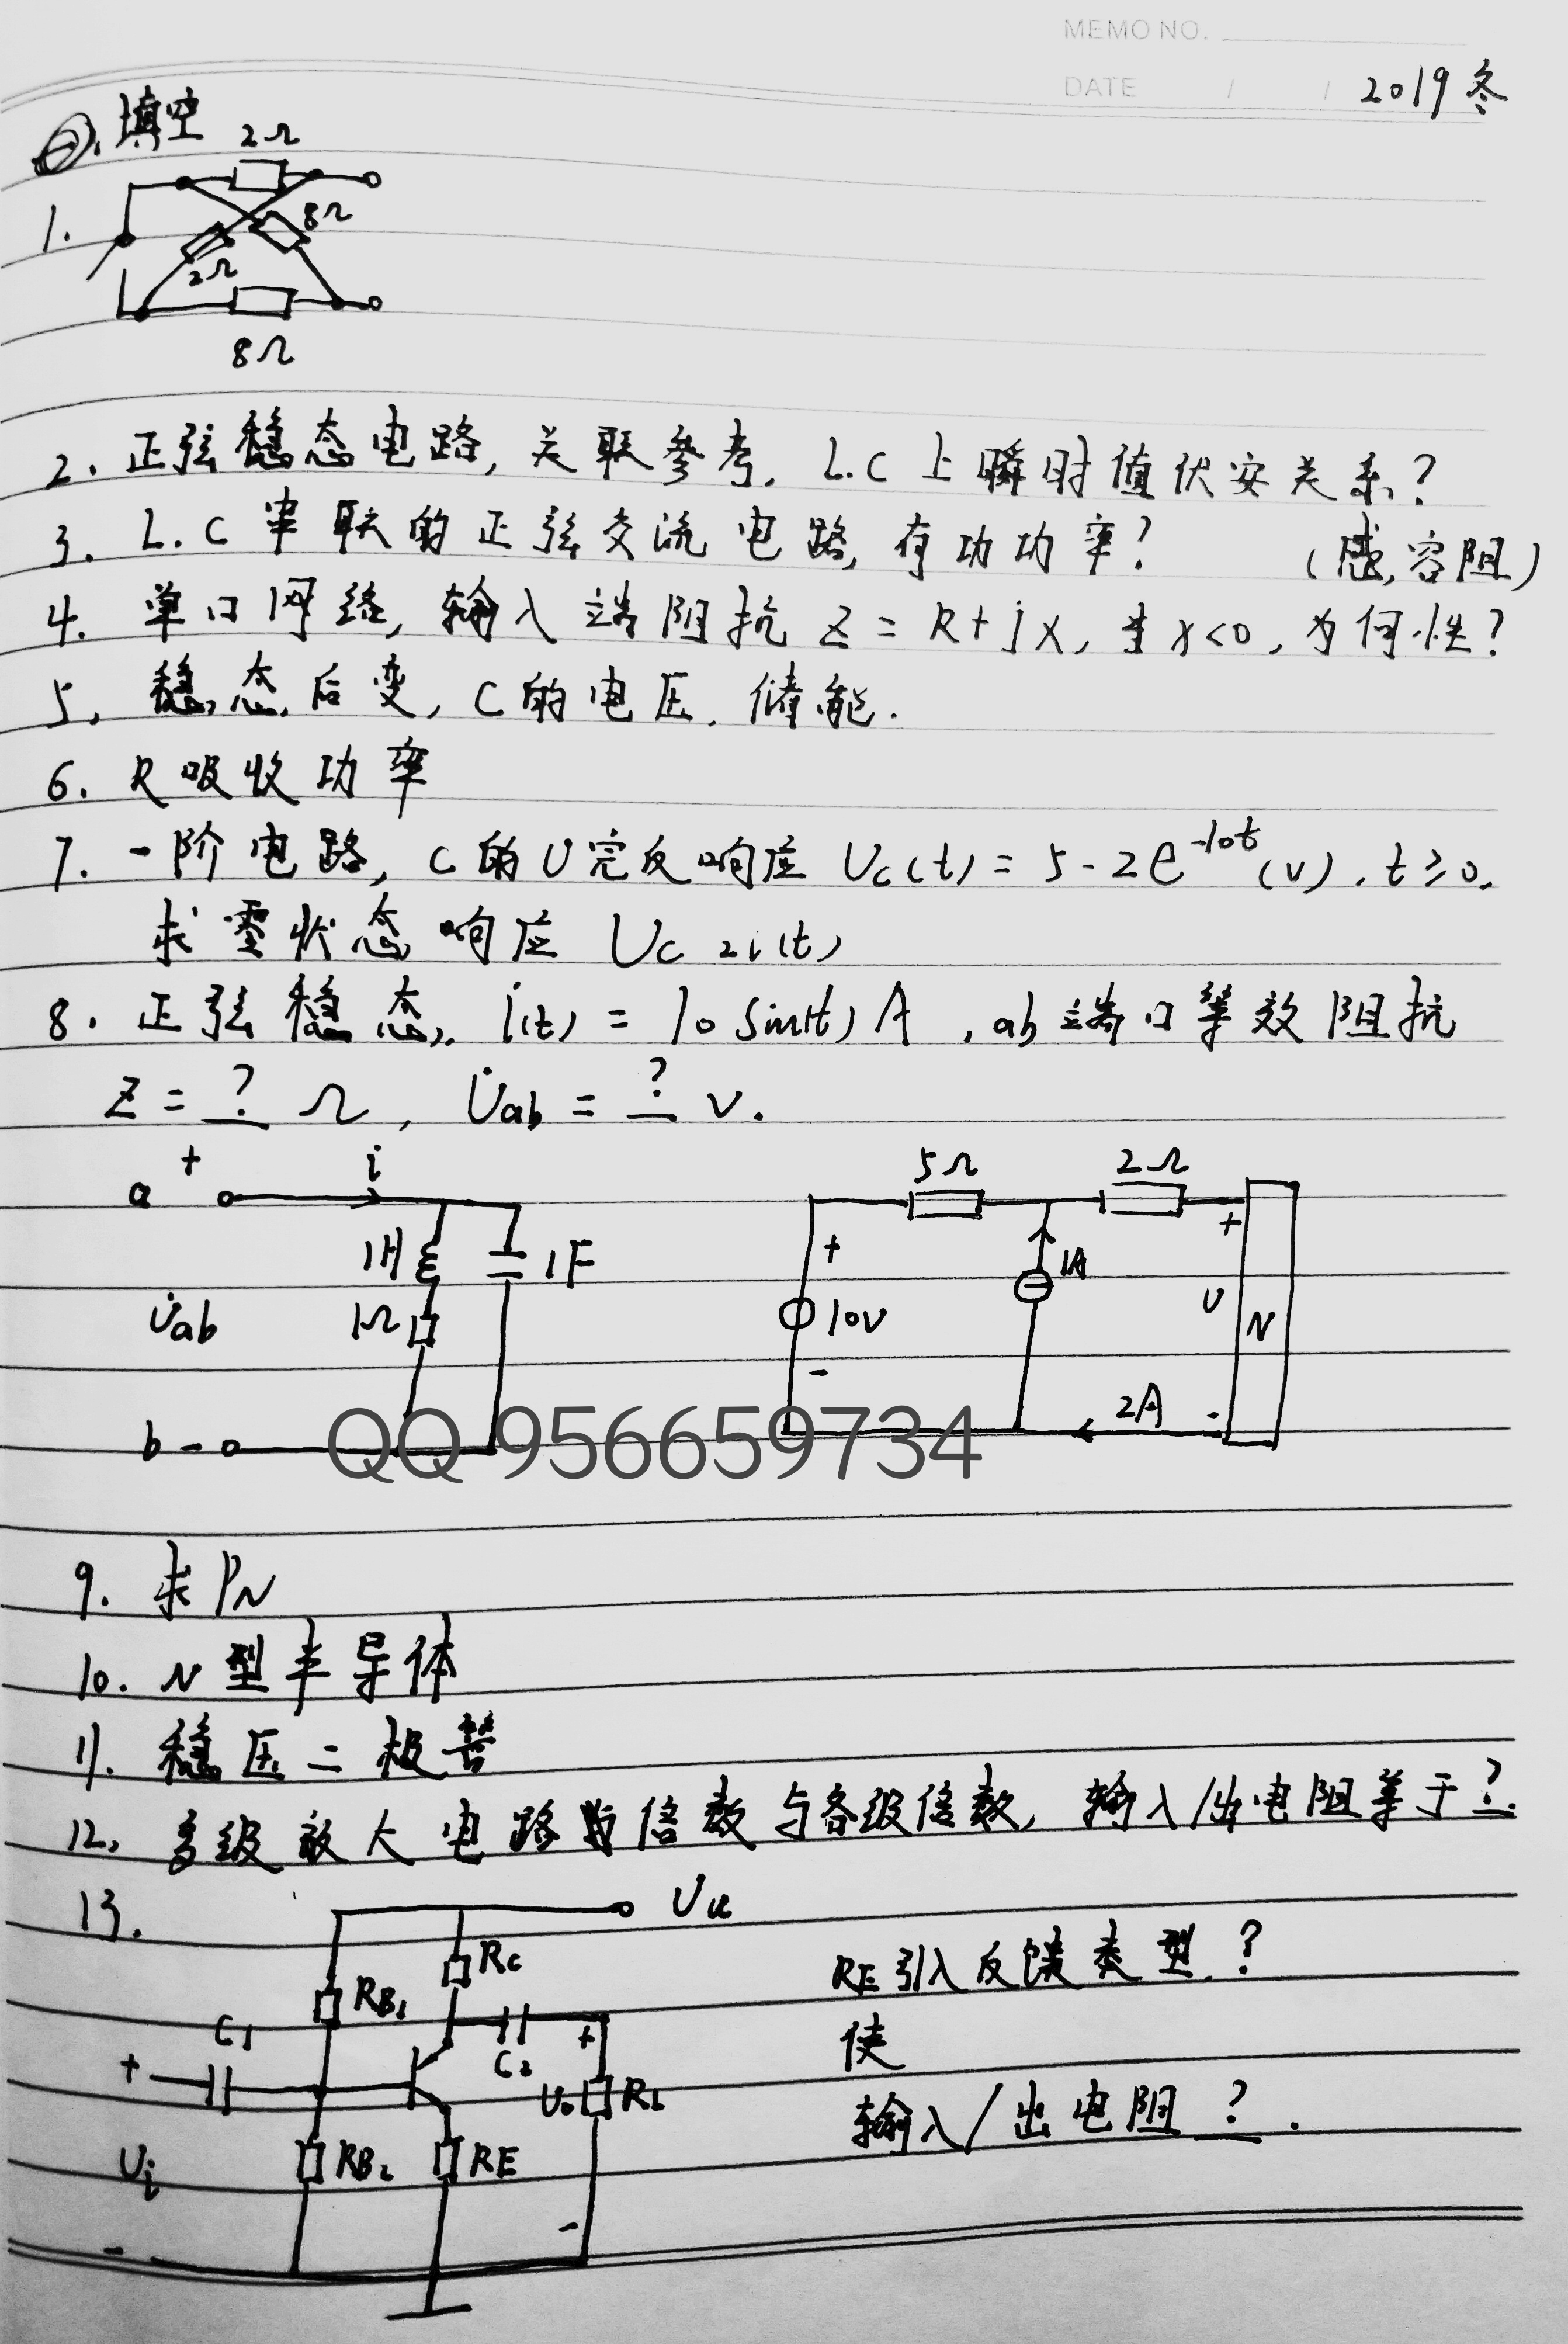 MEMO NO.
DATE / / 2019冬
二、填空
1.
2Ω
8Ω
2Ω
8Ω
2. 正弦稳态电路, 关联参考, L.C上瞬时值伏安关系?
3. L.C串联的正弦交流电路, 有功功率? (感,容阻)
4. 单口网络, 输入端阻抗 Z = R+jX, 当X<0, 为何性?
5. 稳态后变, C的电压. 储能.
6. R吸收功率
7. 一阶电路, C的U完反响应 Uc(t) = 5-2e^-10t (V), t≥0,
求零状态响应 Uc zi(t)
8. 正弦稳态, i(t) = 10 Sin(t) A, ab端口等效阻抗
Z = ? Ω, U̇ab = ? V.
a + i
1H 1F
U̇ab 1Ω
b -
5Ω 2Ω
+ 1A +
10V U N
- 2A -
QQ 956659734
9. 求PN
10. N型半导体
11. 稳压二极管
12. 多级放大电路与倍数与各级倍数, 输入/出电阻等于?.
13.
RB1 RC
C1 C2 +
+ Uo RL
Ui RB2 RE
- -
RE引入反馈类型?
使
输入/出电阻 ? .